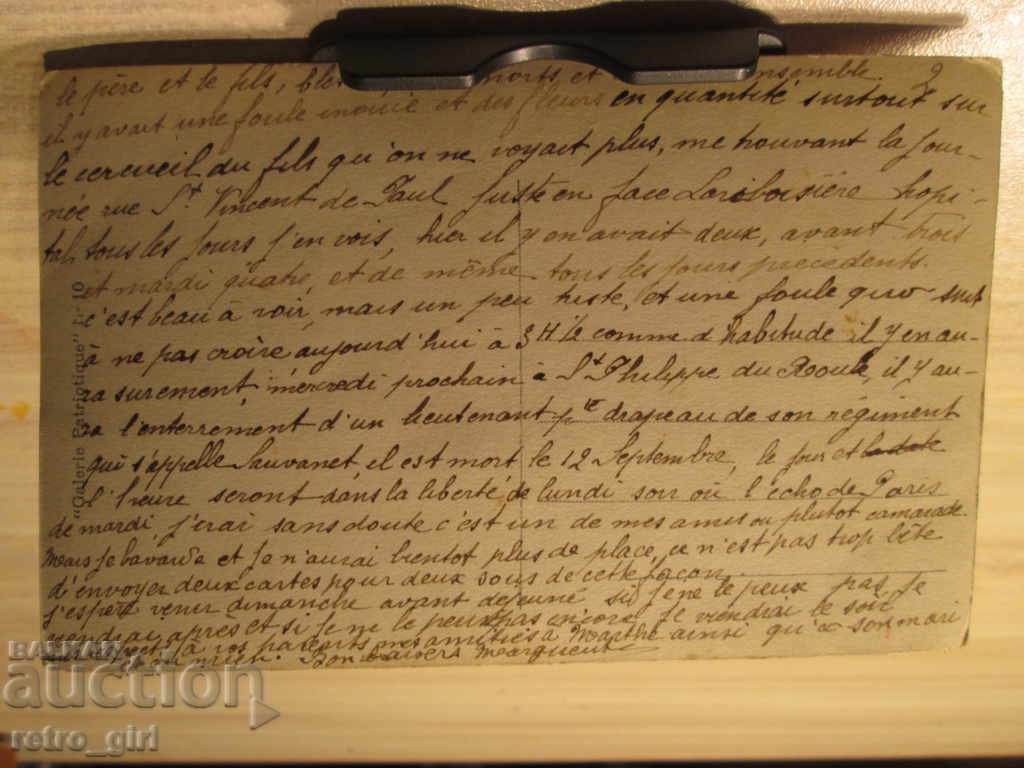 le père et le fils, morts et ensemble. 2
il y avait une foule inouie et des fleurs en quantité surtout sur
le cercueil du fils qu'on ne voyait plus, me trouvant la jour-
née rue St Vincent de Paul juste en face Lariboisière hopi-
tal tous les jours j'en vois, hier il y en avait deux, avant trois
et mardi quatre, et de même tous les jours précédents.
c'est beau à voir, mais un peu triste, et une foule que c'est
à ne pas croire aujourd'hui à 3 H 1/2 comme d'habitude il y en au-
ra surement, mercredi prochain à St Philippe du Roule, il y au-
ra l'enterrement d'un lieutenant drapeau de son régiment
qui s'appelle Sauvanet, il est mort le 12 Septembre, le jour et la date
l'heure seront dans la liberté de lundi soir où l'écho de Paris
de mardi, j'irai sans doute c'est un de mes amis ou plutot camarade
Mais je bavarde et je n'aurai bientot plus de place, ce n'est pas trop bête
d'envoyer deux cartes pour deux sous de cette façon
j'espère venir dimanche avant dejeuné si je ne le peux pas je
viendrai après et si je ne le peux pas encore je viendrai le soir
à vos parents mes amitiés à Marthe ainsi qu'à son mari
Bon baisers Marguerite
"Galerie Patriotique" 10
BALKAN
auction
retro_girl